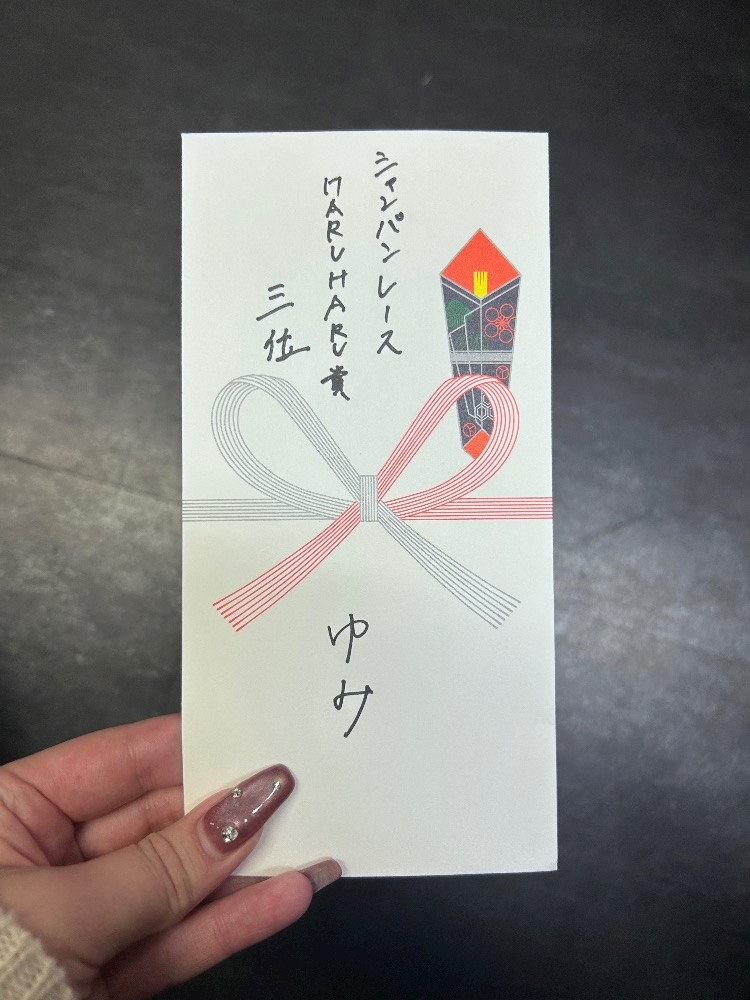 シャンパンレース
MARUHARU賞
三位
ゆみ